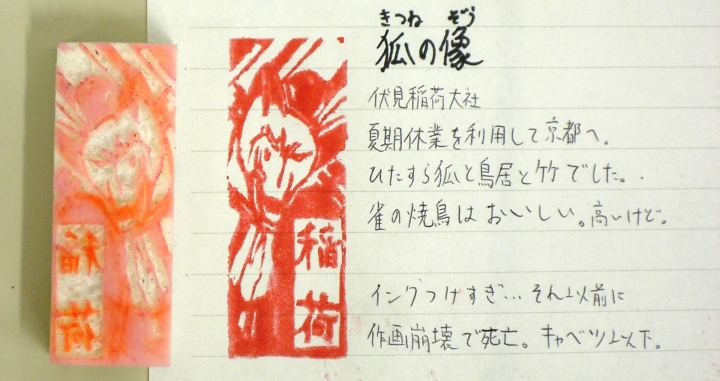 きつね ぞう
狐の像
伏見稲荷大社
夏期休業を利用して京都へ。
ひたすら狐と鳥居と竹でした。
雀の焼鳥はおいしい。高いけど。
インクつけすぎ…それ以前に
作画崩壊で死亡。キャベツ以下。
稲荷
稲荷